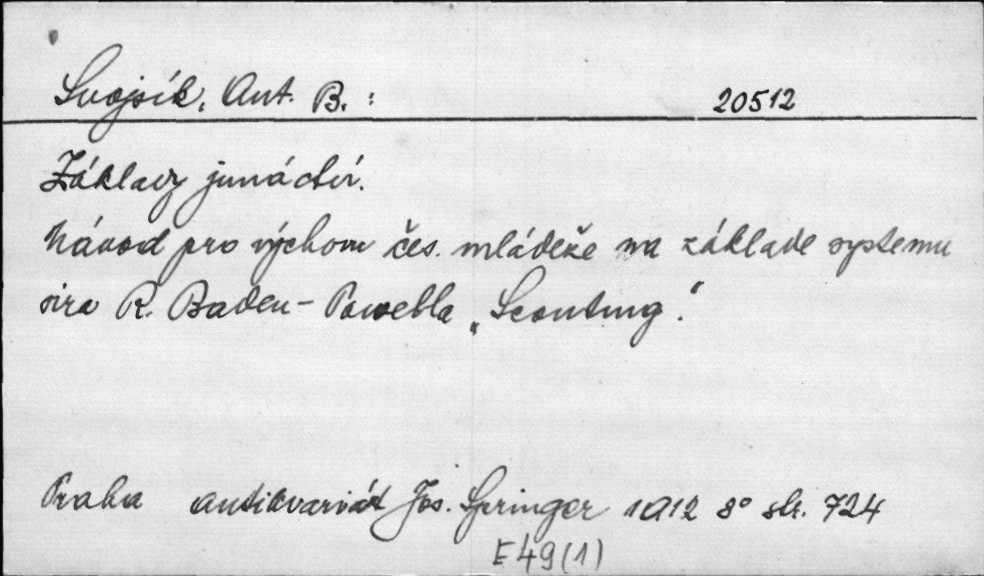 Svojsík, Ant. B.: 20512
Základy junáctví.
Návod pro výchovu čes. mládeže na základe systemu
sira R. Baden-Powella „Scouting".
Praha antikvariát Jos. Springer 1912 8° str. 724
E 49 (1)